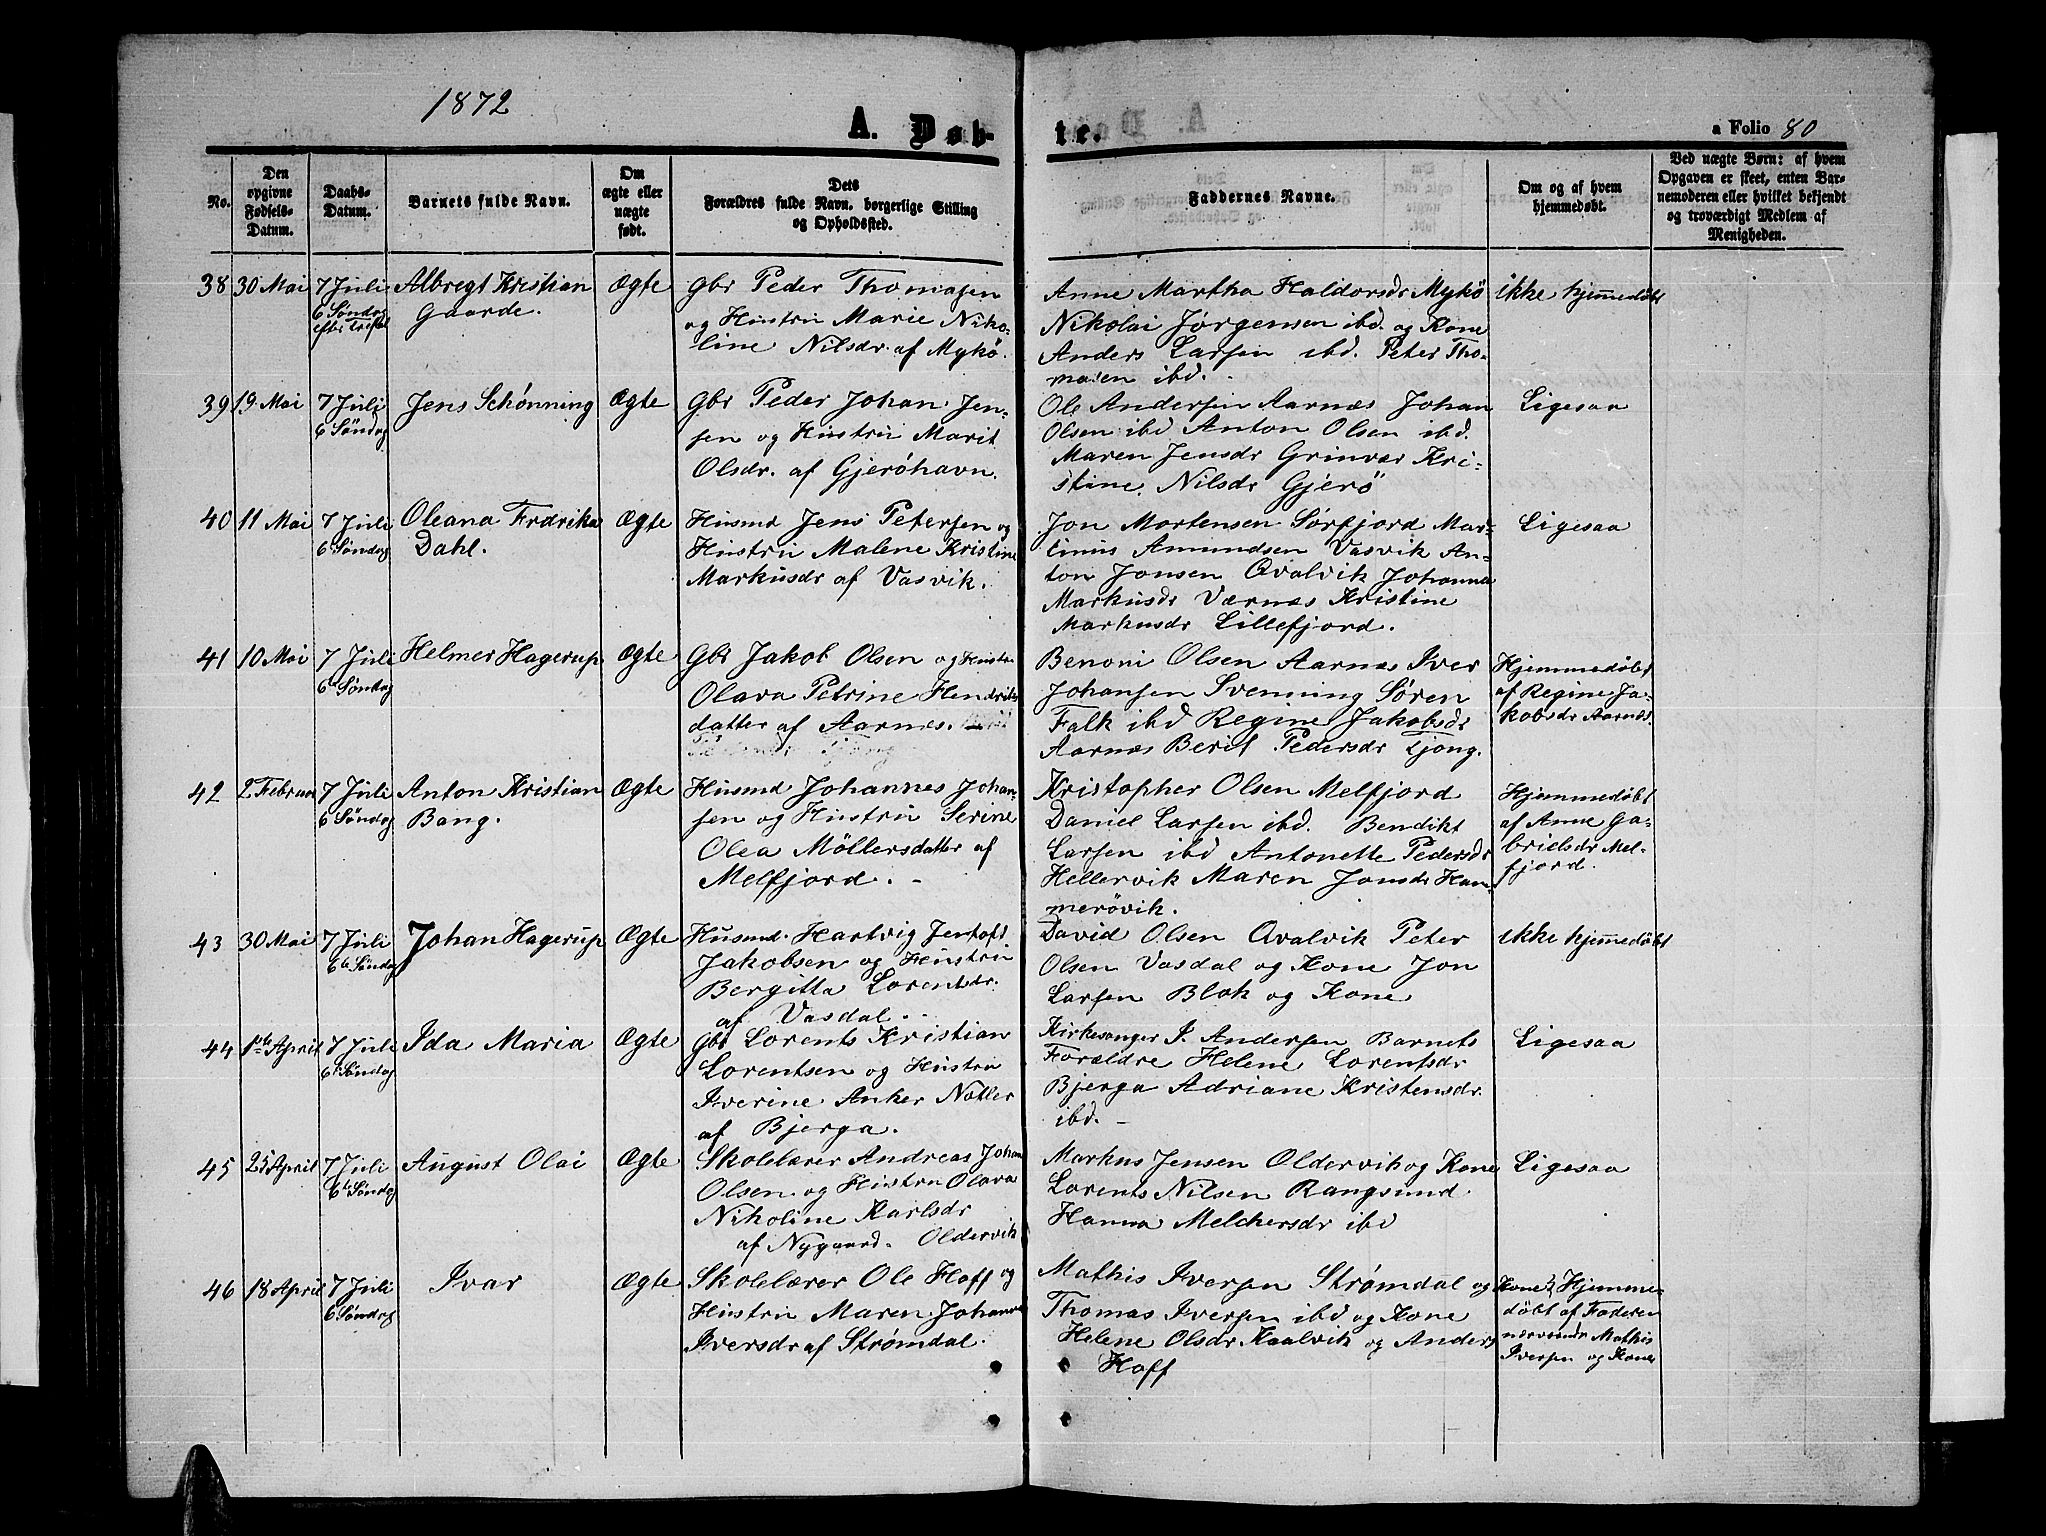 1872
A. Døb-
te.
a Folio 80
No.
Den
opgivne
Fødsels-
Datum.
Daabs-
Datum.
Barnets fulde Navn.
Om
ægte eller
uægte
født.
Dets
Forældres fulde Navn. borgerlige Stilling
og Opholdssted.
Faddernes Navne.
Om og af hvem
hjemmedøbt.
Ved uægte Børn: af hvem
Opgaven er skeet, enten Bar-
nemoderen eller hvilket bekjendt
og troværdigt Medlem af
Menigheden.
38
30 Mai
7 Juli
6 Søndag
efter Trefol
Albregt Kristian
Gaarde.
Ægte
Gbr Peder Thomasen
og Hustru Marie Niko-
line Nilsdr. af Mykö.
Anne Martha Haldorsdr Mykö
Nikolai Jörgensen ibd. og Kone
Anders Larsen ibd. Peter Tho-
masen ibd.
ikke hjemmedöbt
39
19 Mai
7 Juli
6 Söndag
Jens Schönning
Ægte
Gbr Peder Johan Jen-
sen og Hustru Marit
Olsdr. af Gjeröhavn.
Ole Andersen Aarnæs Johan
Olsen ibd Anton Olsen ibd.
Maren Jensdr Grinvær Kri-
stine Nilsdr Gjerö
Ligesaa
40
11 Mai
7 Juli
6 Søndag
Oleana Fredrika
Dahl.
Ægte
Husmd Jens Petersen og
Hustru Malene Kristine
Markusdr af Vasvik.
Jon Mortensen Sörfjord Mar-
tinus Amundsen Vasvik An-
ton Jonsen Qvalvik Johanna
Markusdr Værnæs Kristine
Markusdr Lillefjord.
Ligesaa
41
10 Mai
7 Juli
6 Søndag
Helmer Hagerup
Ægte
Gbr Jakob Olsen og Hustru
Olava Petrine Hendriks
datter af Aarnæs.
Benoni Olsen Aarnæs Iver
Johansen Svenning Sören
Falk ibd Regine Jakobsdr
Aarnæs Berit Pedersdr Tjong.
Hjemmedöbt
af Regine Ja-
kobsdr Aarnæs.
42
2 Februar
7 Juli
6 Søndag
Anton Kristian
Bang.
Ægte
Husmd Johannes Johan-
sen og Hustru Serine
Olea Möllersdatter af
Melfjord.
Kristopher Olsen Melfjord
Daniel Larsen ibd. Bendikt
Larsen ibd Antonette Pedersdr
Hellervik Maren Jonsdr Ham-
merövik.
Hjemmedöbt
af Anne Ga-
brielsdr Mel-
fjord.
43
30 Mai
7 Juli
6te Søndag
Johan Hagerup
Ægte
Husmd. Hartvig Jentoft
Jakobsen og Hustru
Bergitta Lorentsdr.
af Vasdal.
David Olsen Qvalvik Peter
Olsen Vasdal og Kone Jon
Larsen Blok og Kone
ikke hjemmedöbt
44
1ste April
7 Juli
6 Søndag
Ida Maria
Ægte
Gbr Lorents Kristian
Lorentsen og Hustru
Iverine Anker Nøtler
af Bjerga.
Kirkesanger P. Andersen Barnets
Forældre Helene Lorentsdr
Bjerga Adriane Kristensdr.
ibd.
Ligesaa
45
25 April
7 Juli
6te Søndag
August Olai
Ægte
Skolelærer Andreas Johan
Olsen og Hustru Olava
Nikoline Karlsdr
af Nygaard. Oldervik
Markus Jensen Oldervik og Kone
Lorents Nilsen Rangsund.
Hanna Melchersdr ibd
Ligesaa
46
18 April
7 Juli
6 Søndag
Ivar
Ægte
Skolelærer Ole Hoff og
Hustru Maren Johanna
Iversdr af Strømdal.
Mathis Iversen Strømdal og Kone
Thomas Iversen ibd og Kone
Helene Olsdr Kaalvik og Anders
Hoff
Hjemme-
döbt af Faderen
nærværende Mathis
Iversen og Kone